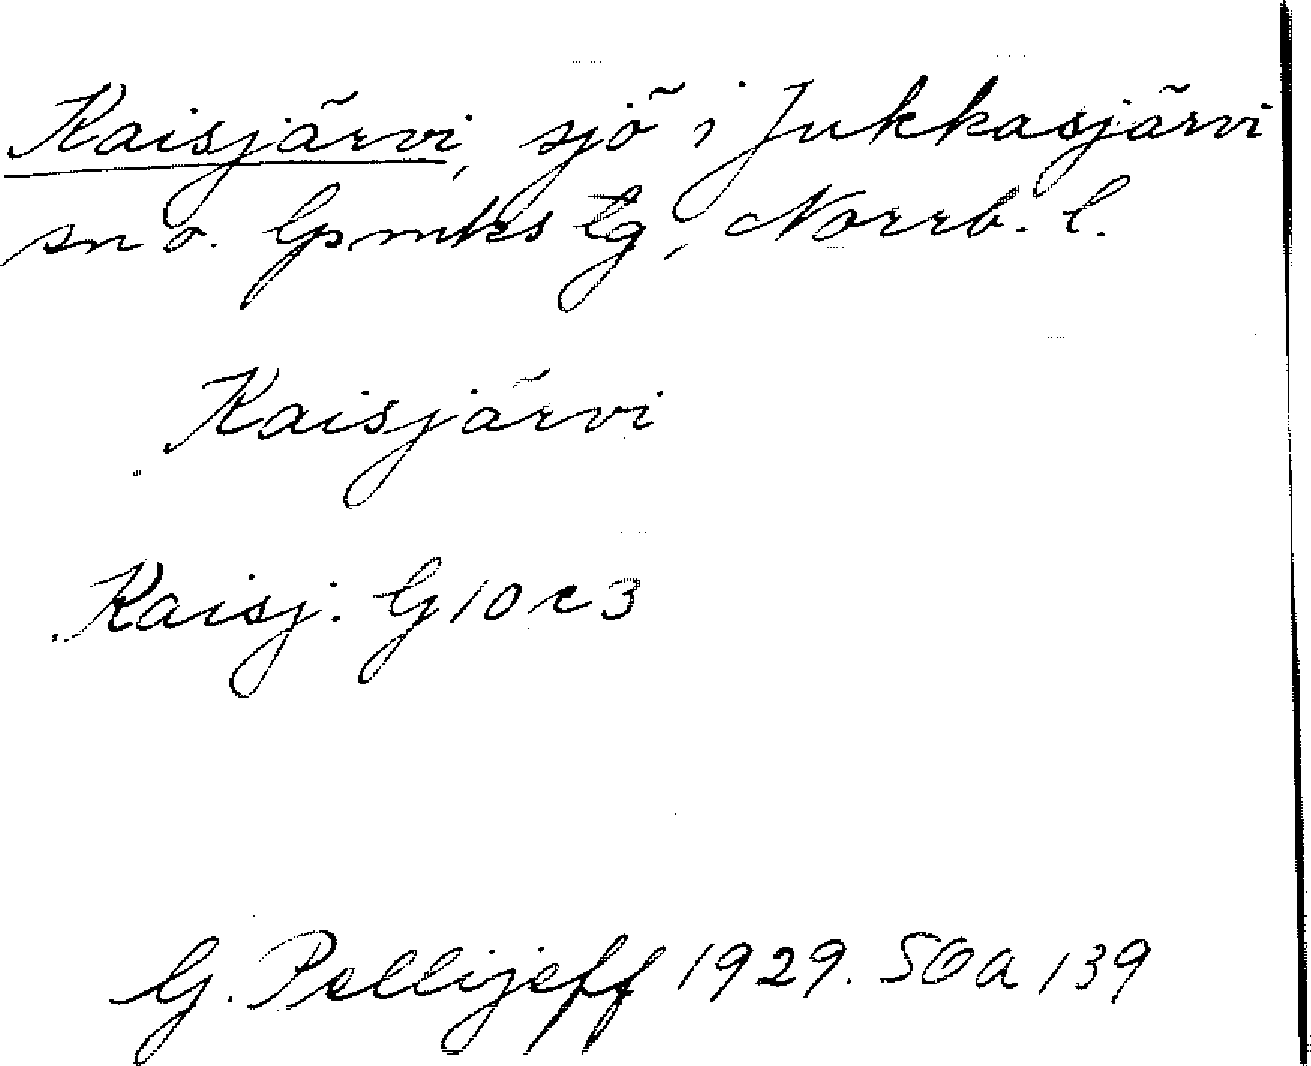 Kaisjärvi, sjö i Jukkasjärvi
sn o. lpmks tg, Norrb. l.
Kaisjärvi
Kaisj. G 10 c 3
G. Pellijeff 1929. SOa 139